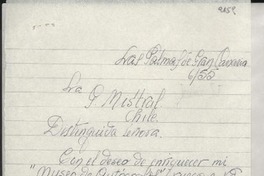 Las Palmas de Gran Canaria
6/52
Sra G. Mistral
Chile.
Distinguida señora:
Con el deseo de enriquecer mi
"Museo de